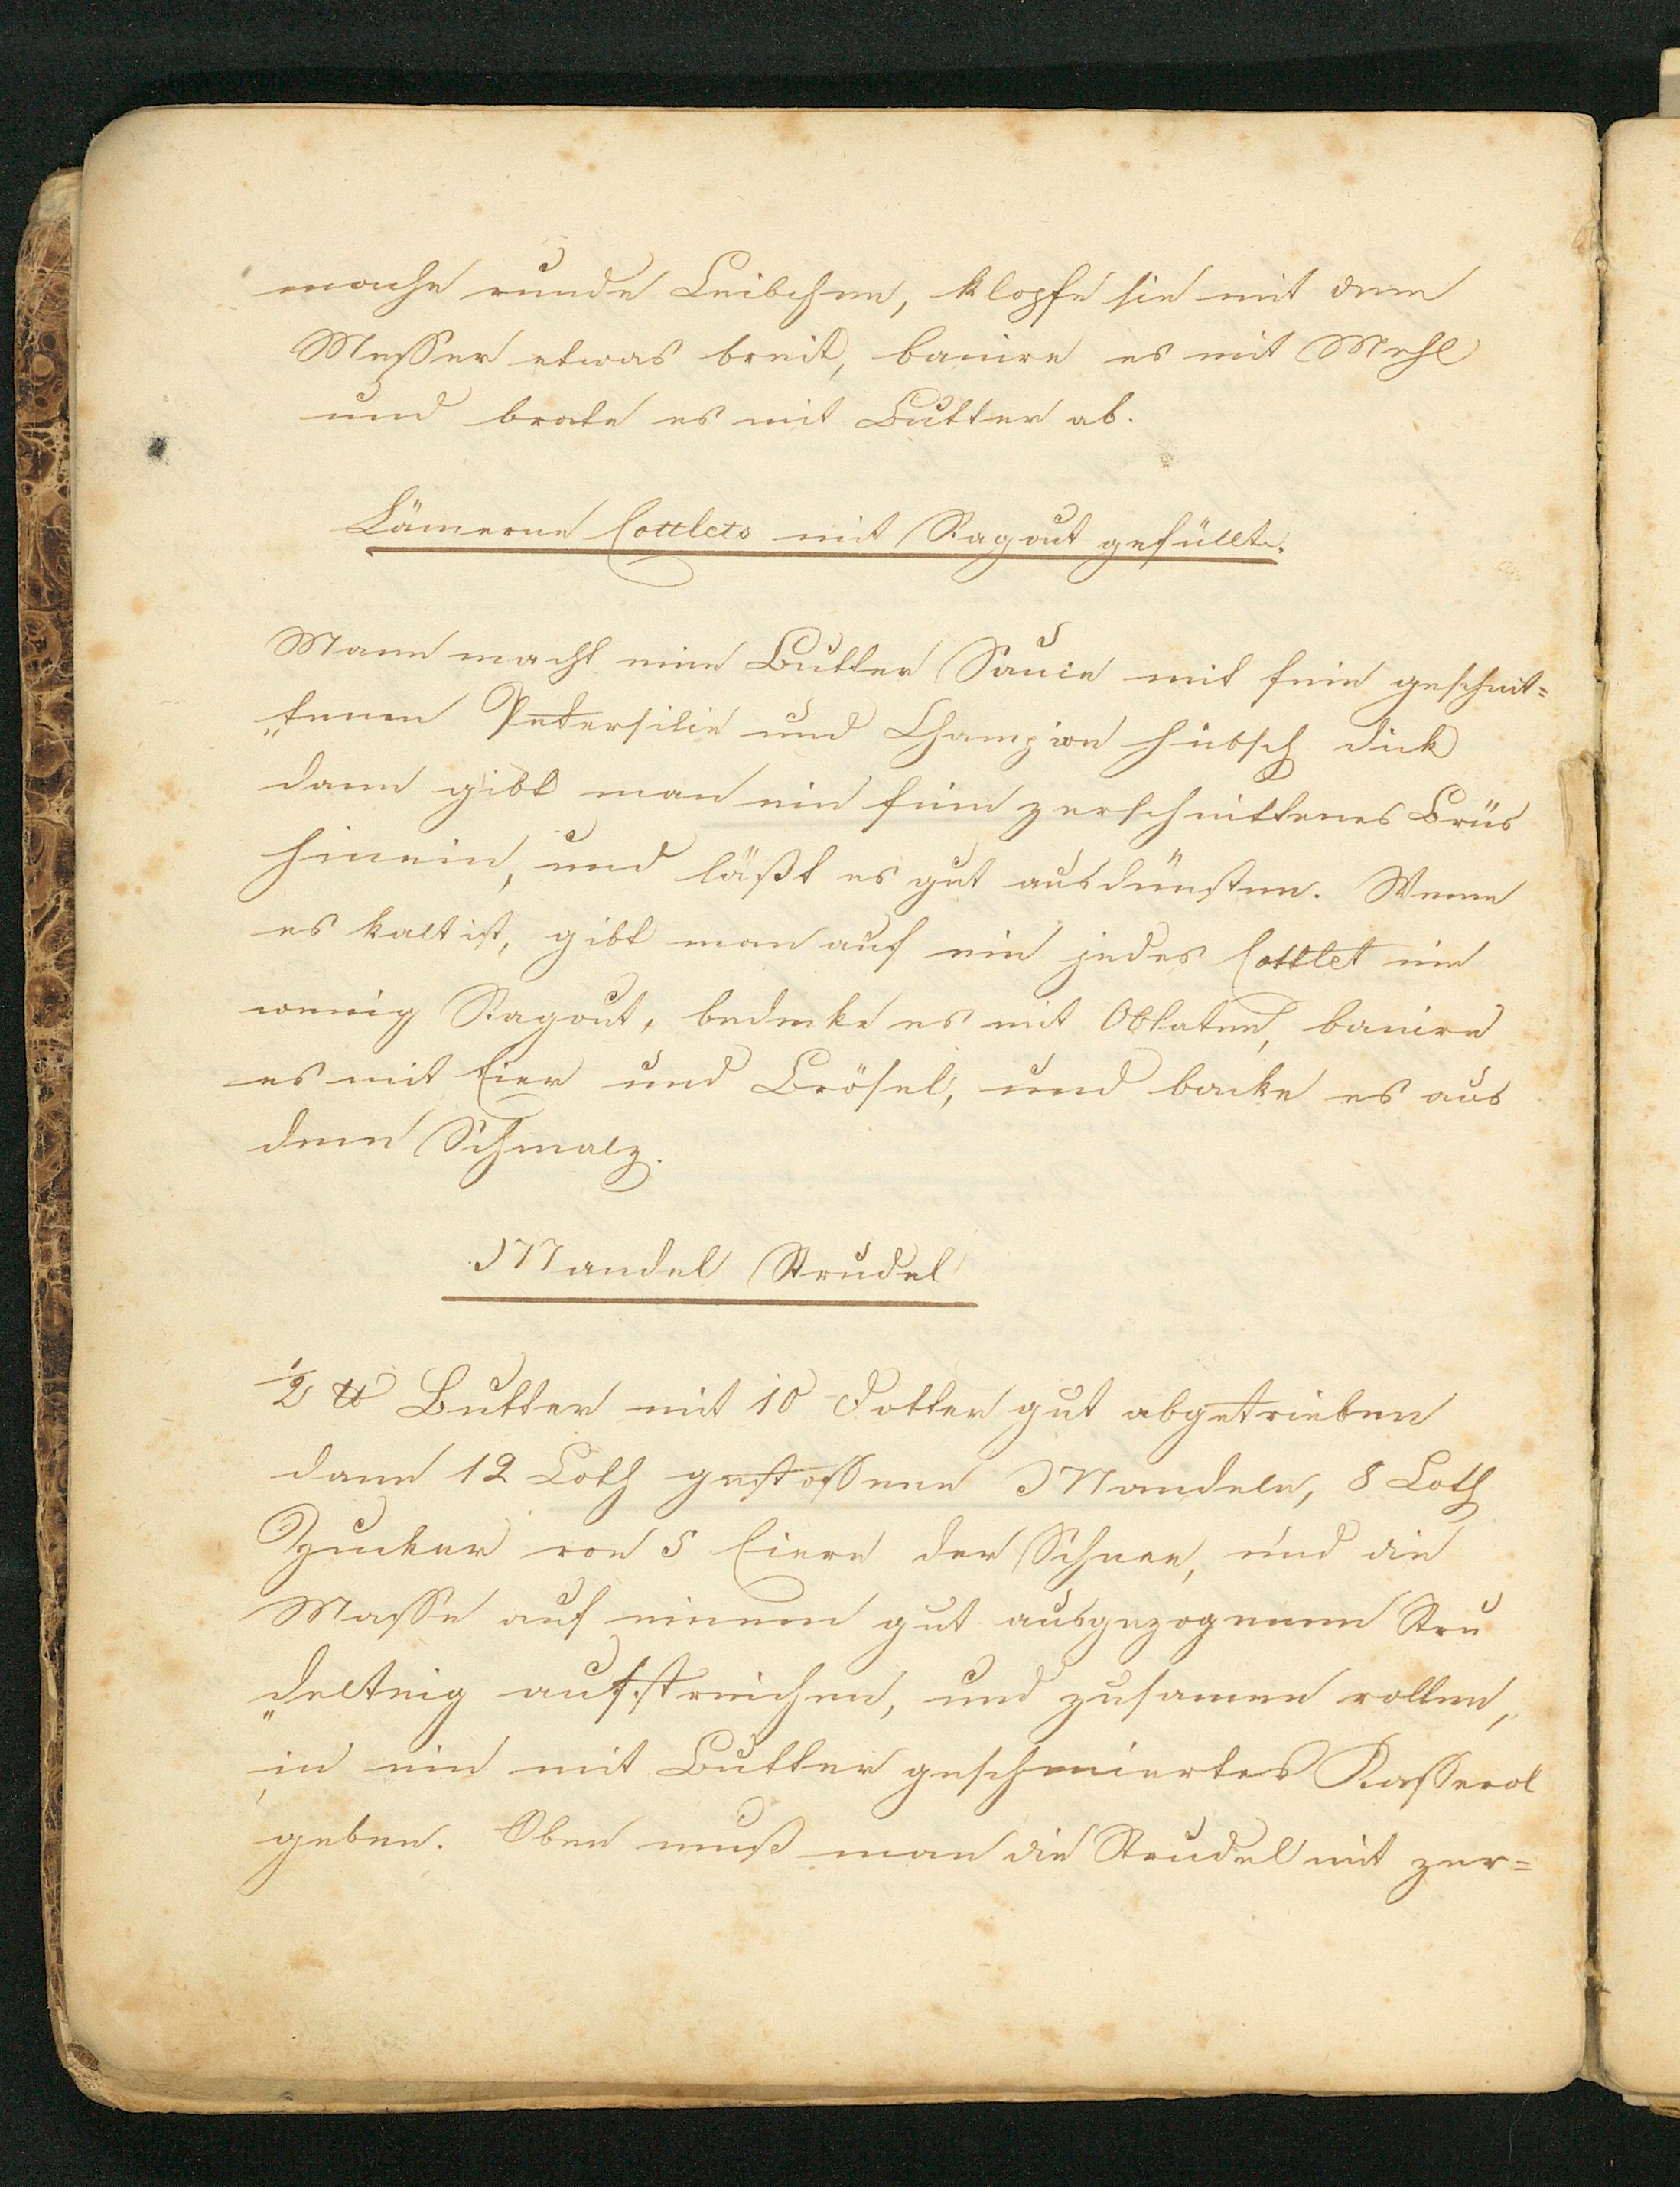 mache runde Leibchen, klopfe sie mit dem
Messer etwas breit, banire es mit Mehl
und brate es mit Butter ab.
Lämerne Cottlets mit Ragout gefüllt.
Mann macht eine Butter Sauce mit fein geschnit=
„tenen Petersilie und Champion hübsch dick
dann gibt man ein fein zerschnittenes Brüs
hinein, und läßt es gut ausdünsten. Wenn
es kalt ist, gibt man auf ein jedes Cottlet ein
wenig Ragout, bedecke es mit Oblaten, banire
es mit Eier und Brösel, und backe es aus
dem Schmalz.
Mandel Strudel
1/2 ℔ Butter mit 10 Dotter gut abgetrieben
dann 12 Loth gestossene Mandeln, 8 Loth
Zucker von 5 Eiern der Schnee, und die
Masse auf einem gut ausgezogenen Stru
„delteig aufstreichen, und zusamen rollen,
in ein mit Butter geschmiertes Kasserol
geben. Oben muß man die Strudel mit zer=